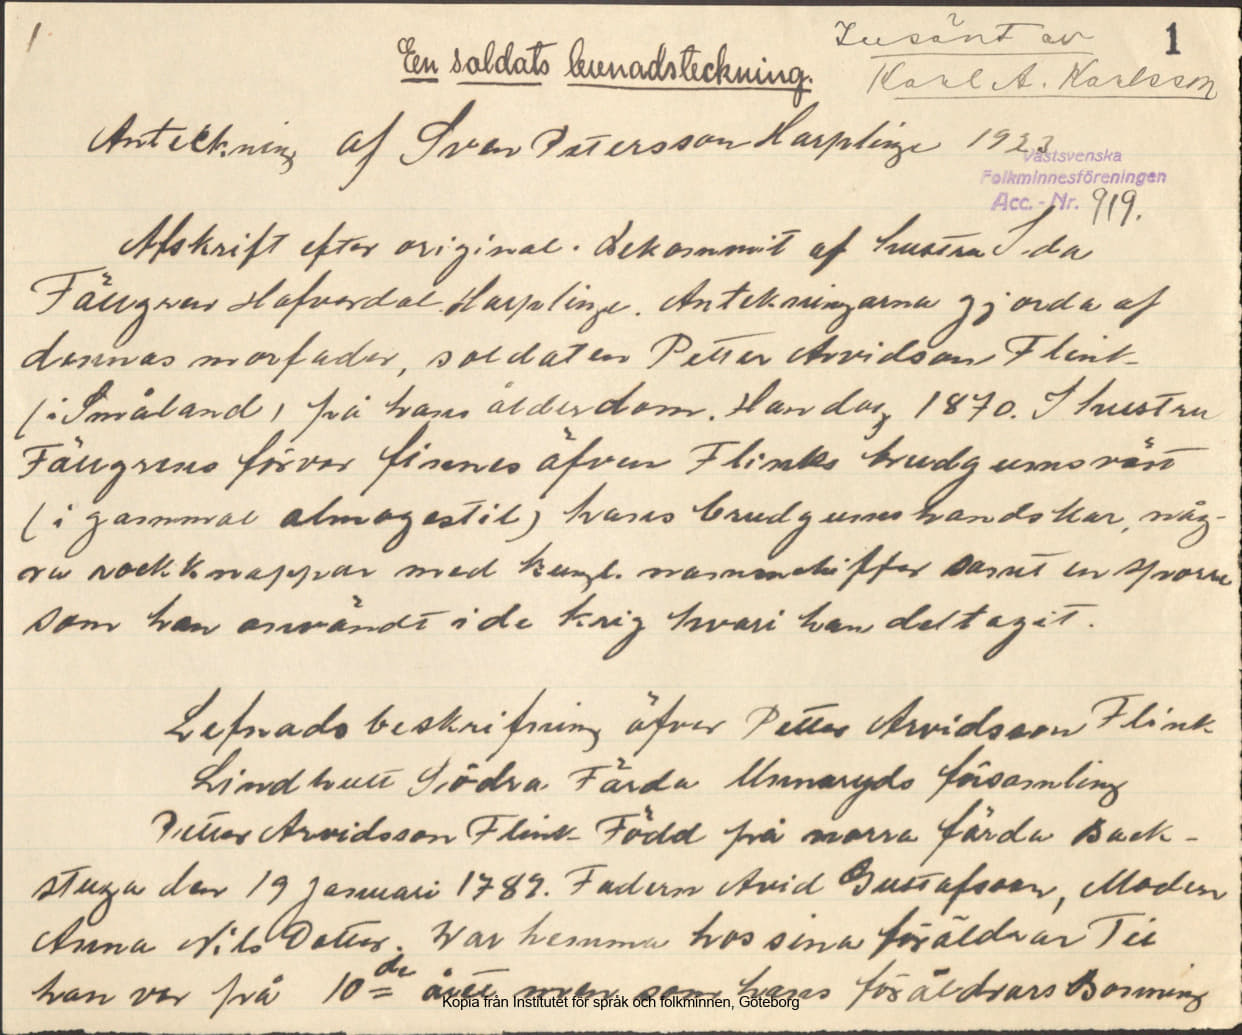 1.
1
Insänt av
Karl A. Karlsson
En soldats levnadsteckning.
Anteckning af Sven Petersson Harplinge 1923
Västsvenska
Folkminnesföreningen
Acc. - Nr. 919.
Afskrift efter original. Bekommit af hustru Ida
Fällgren Hafverdal Harplinge. Antekningarna gjorda af
dennas morfader, soldaten Petter Arvidson Flink
(i Småland) på hans ålderdom. Han dog 1870. I hustru
Fällgrens förvar finnes äfven Flinks brudgumsväst
(i gammal almogestil) hans brudgumshandskar, någ-
ra rockknappar med kungl. namnchiffer samt en sporre
som han användt i de krig hvari han deltagit.
Lefnadsbeskrifning öfver Petter Arvidsson Flink
Lindhult Södra Färda Unnaryds församling
Petter Arvidsson Flink Född på norra färda Back-
stuga den 19 Januari 1789. Fadern Avid Gustafsson, Modern
Anna Nils Dotter. War hemma hos sina föräldrar Till
han var på 10de året men som hans föräldrars Boning
Kopia från Institutet för språk och folkminnen, Göteborg